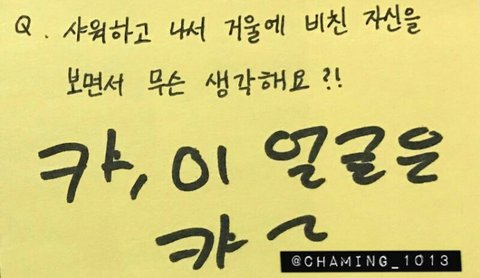 Q. 샤워하고 나서 거울에 비친 자신을
보면서 무슨 생각해요?!
캬, 이 얼굴은
캬~
@CHAMING_1013